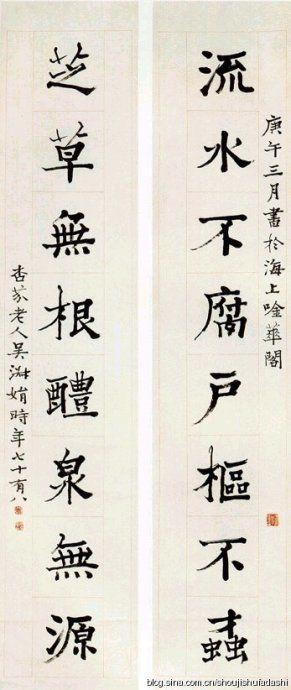 流水不腐戶樞不蠹
庚午三月書於海上唫華閣
芝草無根醴泉無源
杏芬老人吳淑娟時年七十有八
blog.sina.com.cn/shoujishufadashi